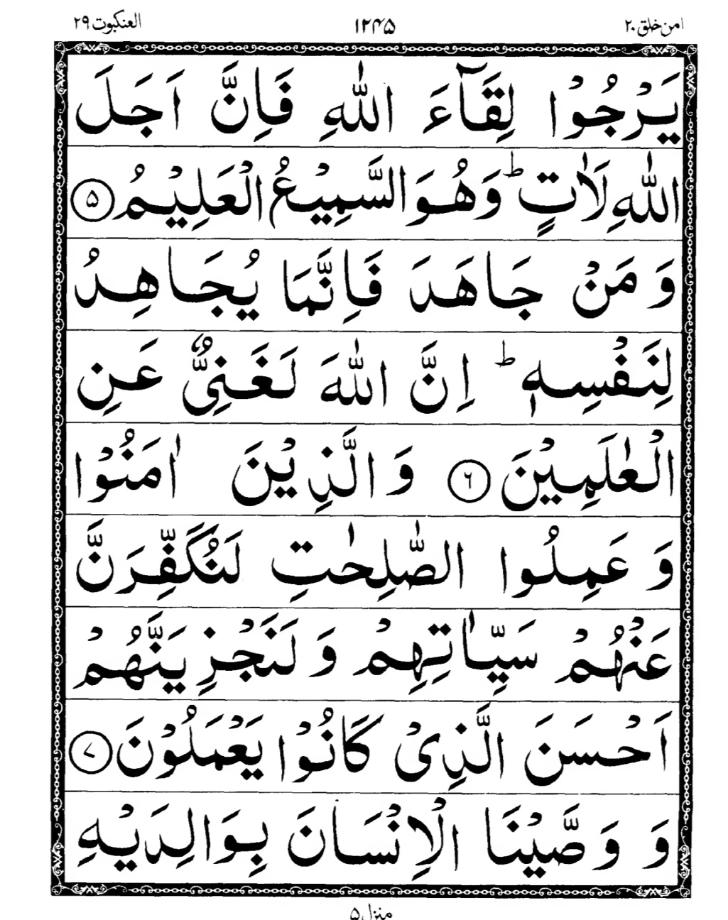 امن خلق ۲۰ ۱۲۴۵ العنکبوت ۲۹
یَرْجُوْا لِقَآءَ اللّٰهِ فَاِنَّ اَجَلَ
اللّٰهِ لَاٰتٍ ؕ وَهُوَ السَّمِیْعُ الْعَلِیْمُ ۵
وَ مَنْ جَاهَدَ فَاِنَّمَا یُجَاهِدُ
لِنَفْسِهٖ ؕ اِنَّ اللّٰهَ لَغَنِیٌّ عَنِ
الْعٰلَمِیْنَ ۶ وَالَّذِیْنَ اٰمَنُوْا
وَ عَمِلُوا الصّٰلِحٰتِ لَنُكَفِّرَنَّ
عَنْهُمْ سَیِّاٰتِهِمْ وَ لَنَجْزِیَنَّهُمْ
اَحْسَنَ الَّذِیْ كَانُوْا یَعْمَلُوْنَ ۷
وَ وَصَّیْنَا الْاِنْسَانَ بِوَالِدَیْهِ
منزل ۵